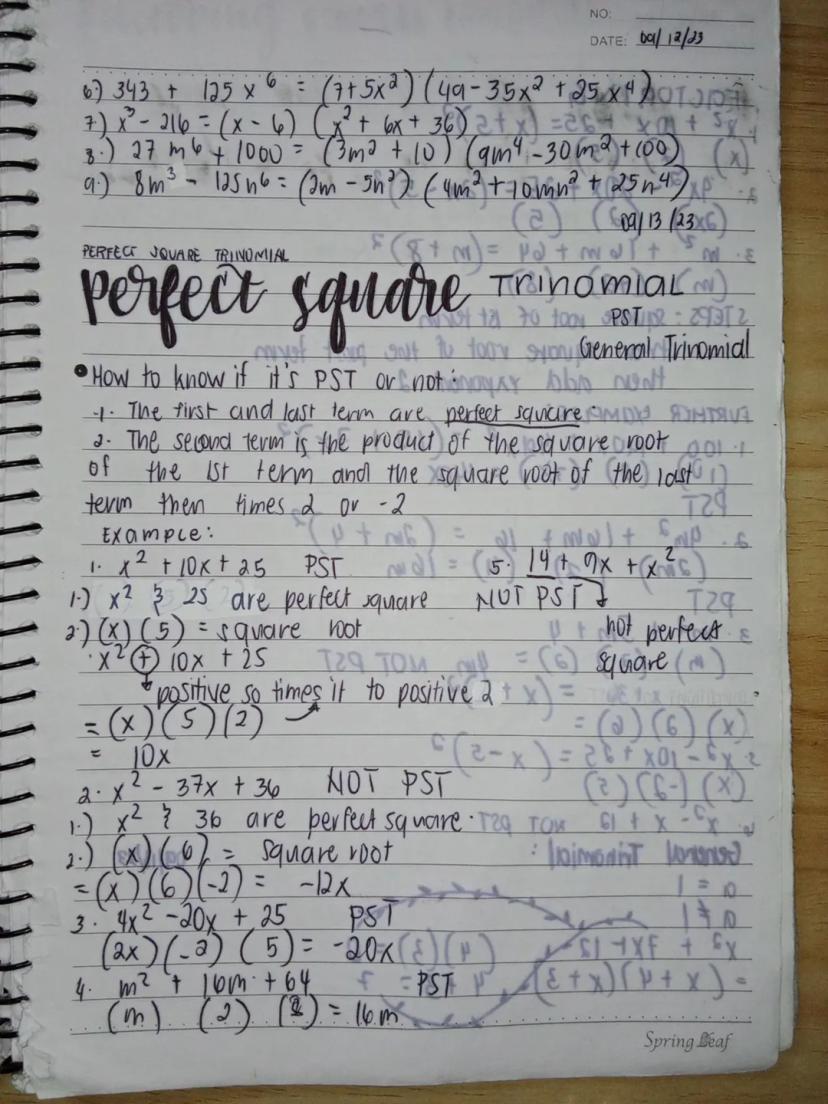 NO:
DATE: 09/12/23
6.) 343 + 125x⁶ = (7+5x²) (49-35x² + 25x⁴)
7.) x³ - 216 = (x - 6) (x² + 6x + 36)
8.) 27m⁶ + 1000 = (3m² + 10) (9m⁴ - 30m² + 100)
9.) 8m³ - 125n⁶ = (2m - 5n²) (4m² + 10mn² + 25n⁴)
09/13/23
PERFECT SQUARE TRINOMIAL
perfect square Trinomial
PST
General Trinomial
• How to know if it's PST or not:
1. The first and last term are perfect square
2. The second term is the product of the square root
of the 1st term and the square root of the last
term then times 2 or -2
Example:
1. x² + 10x + 25 PST
1.) x² & 25 are perfect square
2.) (x) (5) = square root
x² + 10x + 25
positive so times it to positive 2
= (x) (5) (2)
= 10x
5. 14 + 9x + x²
NOT PST
not perfect
square
2. x² - 37x + 36 NOT PST
1.) x² & 36 are perfect square.
2.) (x) (6) = square root
= (x) (6) (-2) = -12x
3. 4x² - 20x + 25 PST
(2x) (-2) (5) = -20x
4. m² + 16m + 64 = PST
(m) (2) (8) = 16m
Spring Leaf